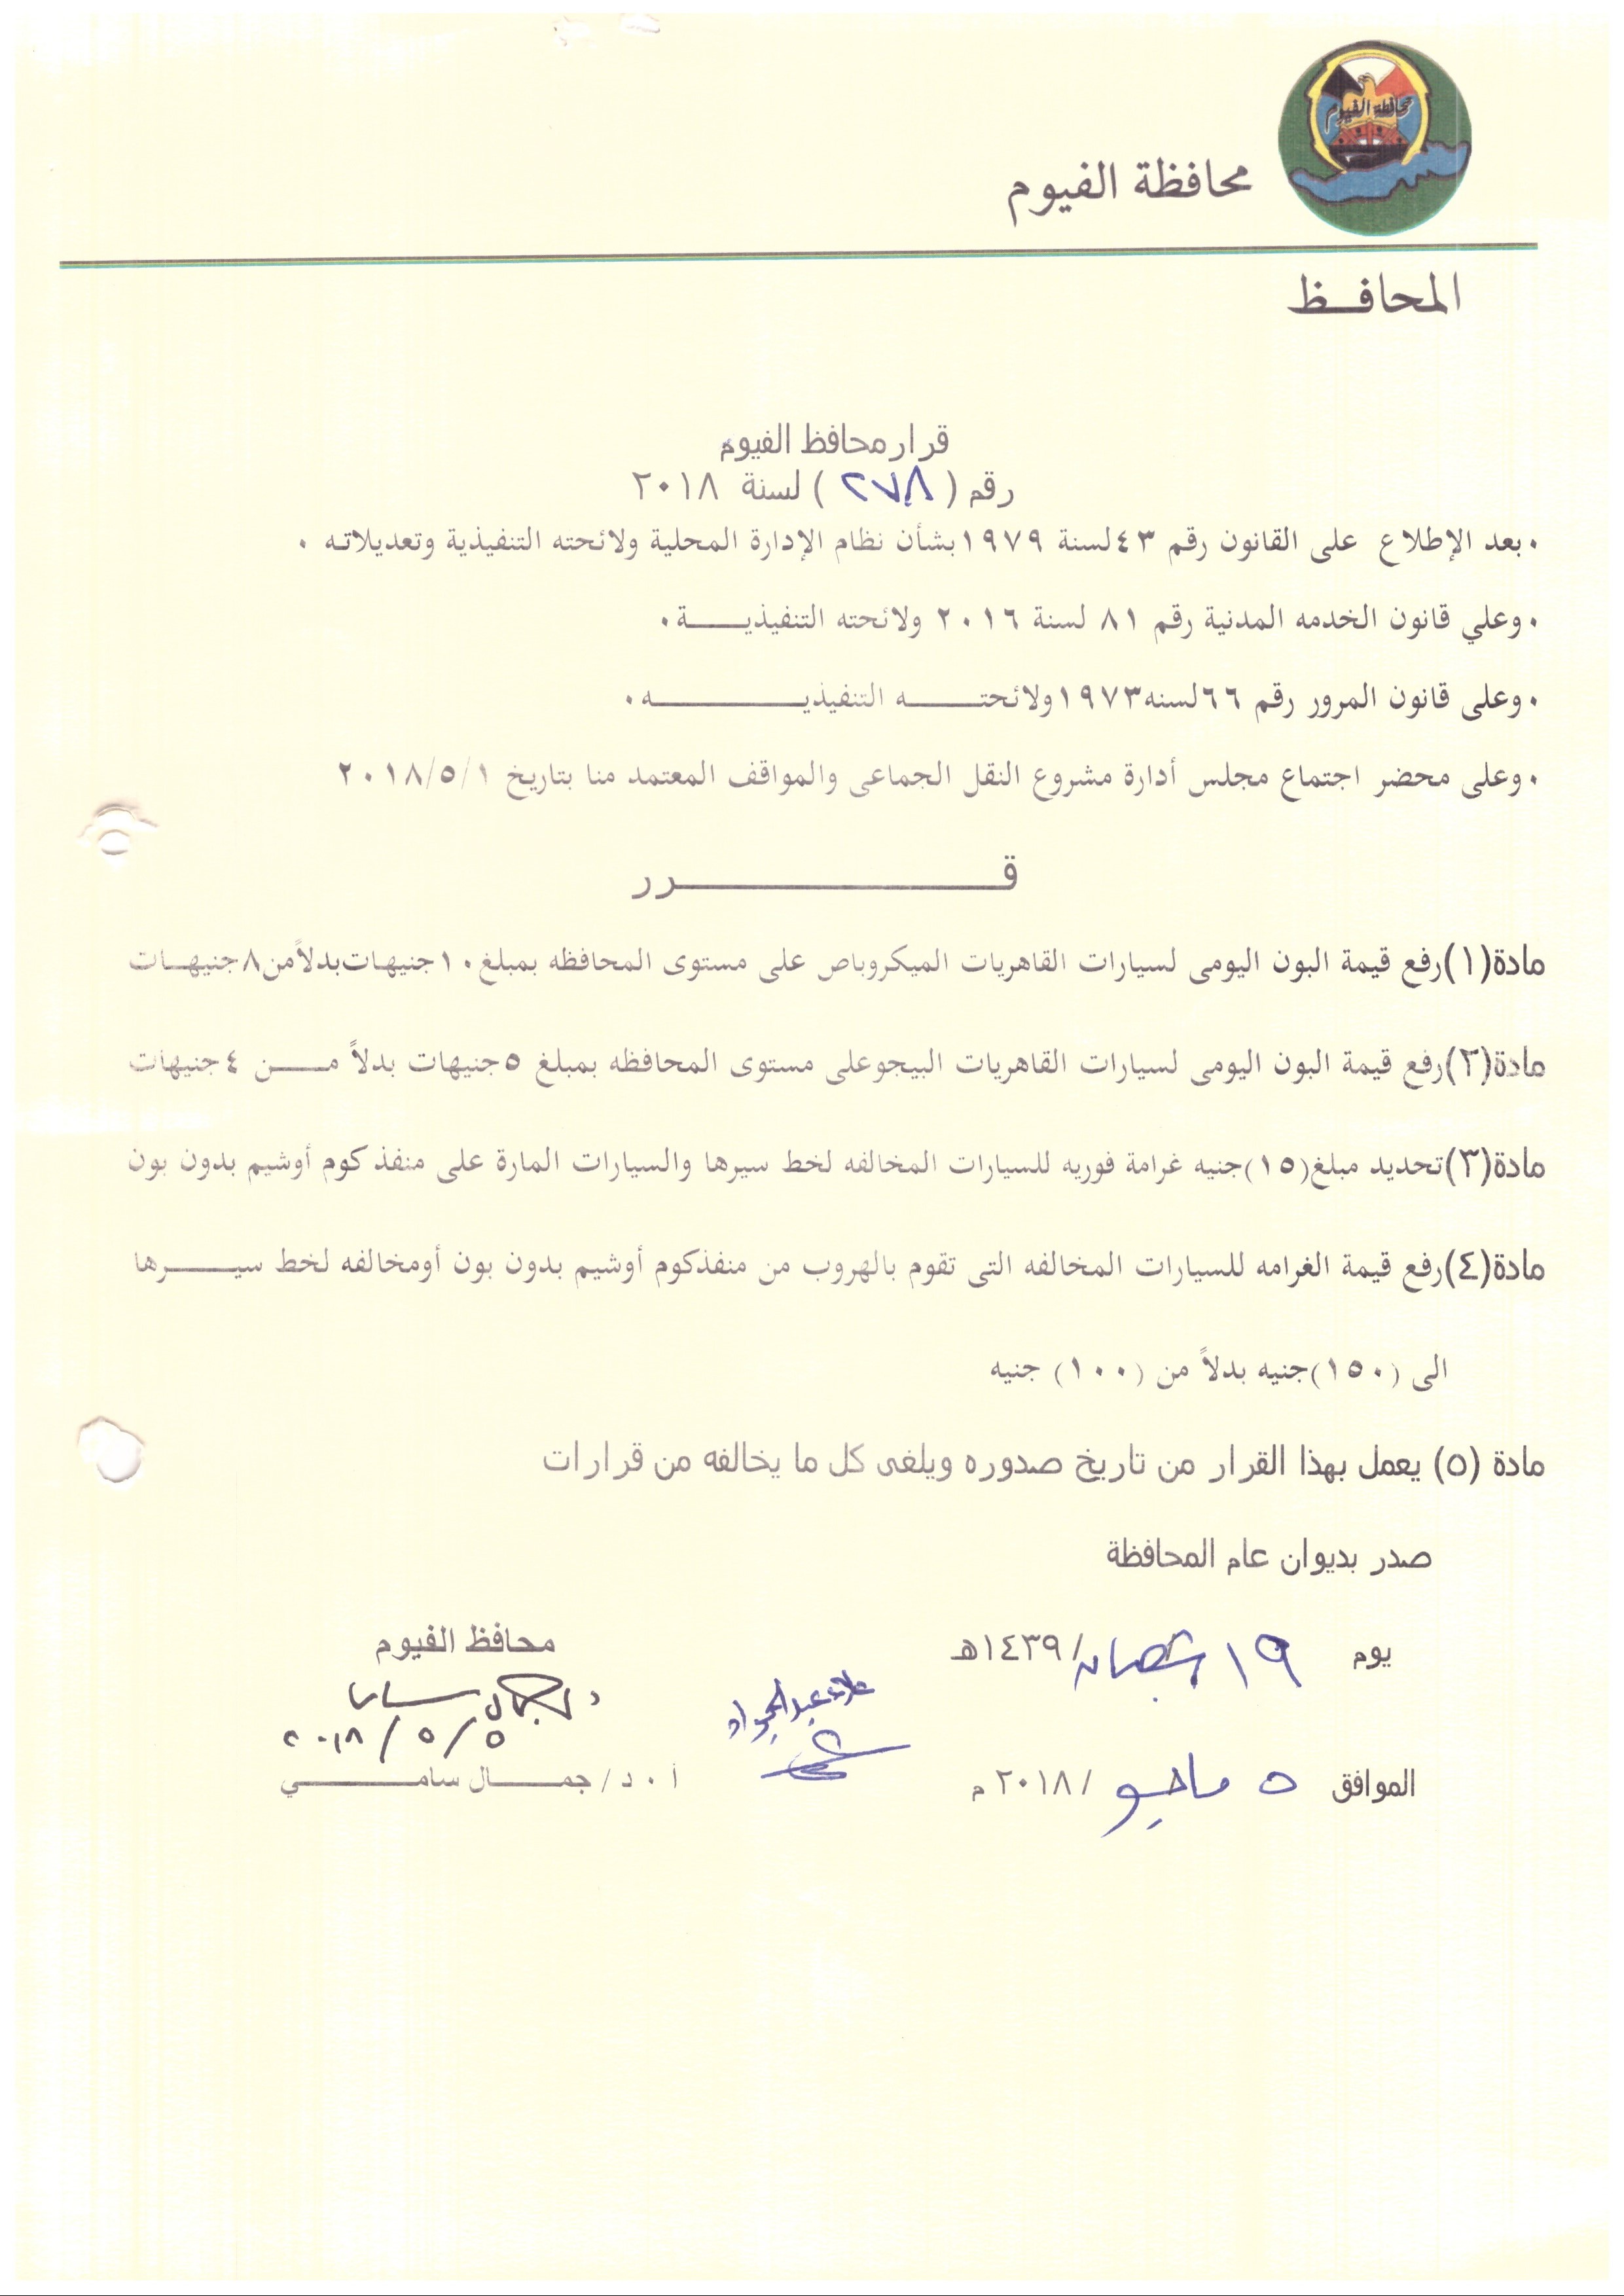 محافظة الفيوم
محافظة الفيوم
المحافظ
قرار محافظ الفيوم
رقم ( ٢٧٨ ) لسنة ٢٠١٨
• بعد الإطلاع على القانون رقم ٤٣ لسنة ١٩٧٩ بشأن نظام الإدارة المحلية ولائحته التنفيذية وتعديلاته .
• وعلي قانون الخدمه المدنية رقم ٨١ لسنة ٢٠١٦ ولائحته التنفيذية .
• وعلى قانون المرور رقم ٦٦ لسنه ١٩٧٣ ولائحته التنفيذيه .
• وعلى محضر اجتماع مجلس أدارة مشروع النقل الجماعى والمواقف المعتمد منا بتاريخ ٢٠١٨/٥/١
قرر
مادة(١)رفع قيمة البون اليومى لسيارات القاهريات الميكروباص على مستوى المحافظه بمبلغ ١٠ جنيهات بدلاً من ٨ جنيهات
مادة(٢)رفع قيمة البون اليومى لسيارات القاهريات البيجو على مستوى المحافظه بمبلغ ٥ جنيهات بدلاً من ٤ جنيهات
مادة(٣)تحديد مبلغ(١٥)جنيه غرامة فوريه للسيارات المخالفه لخط سيرها والسيارات المارة على منفذ كوم أوشيم بدون بون
مادة(٤)رفع قيمة الغرامه للسيارات المخالفه التى تقوم بالهروب من منفذكوم أوشيم بدون بون أومخالفه لخط سيرها
الى (١٥٠)جنيه بدلاً من (١٠٠) جنيه
مادة (٥) يعمل بهذا القرار من تاريخ صدوره ويلغى كل ما يخالفه من قرارات
صدر بديوان عام المحافظة
يوم ١٩ شعبان /١٤٣٩هـ
الموافق ٥ مايو /٢٠١٨ م
علاء عبد الجواد
محافظ الفيوم
د. جمال سامي
٢٠١٨/٥/٥
أ . د / جمال سامي